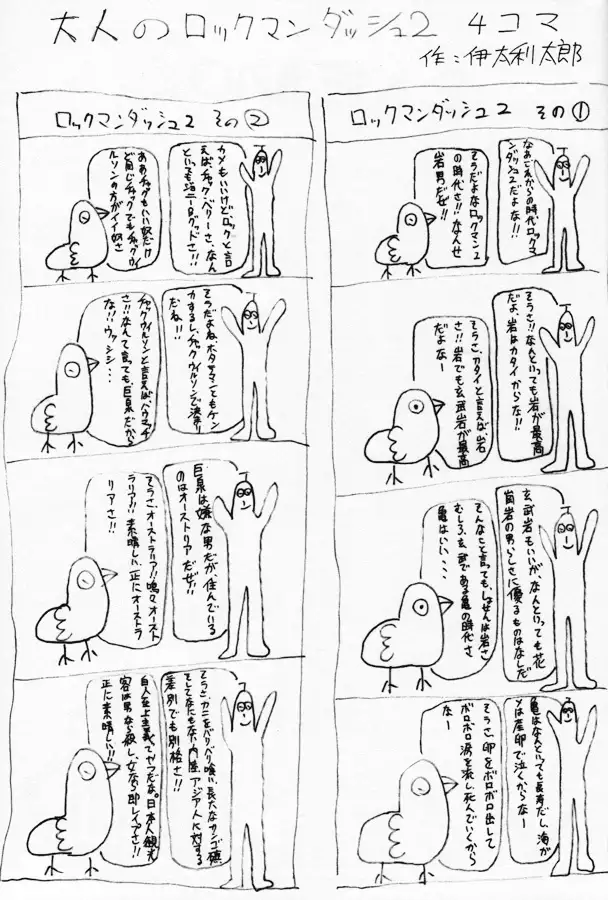 大人のロックマンダッシュ2 4コマ
作:伊太利太郎
ロックマンダッシュ2 その①
なあこれからの時代ロックマ
ンダッシュ2だよな!!
そうだよなロックマン2
の時代さ!!なんせ
岩男だぜ!!
そうさ!!なんといっても岩が最高
だよ、岩はカタイからな!!
そうさ、カタイと言えば岩石
さ!!岩でも玄武岩が最高
だよなー
玄武岩もいいが、なんといっても花
崗岩の男らしさに優るものはなしだ
そんなこと言っても、しょせんは岩さ
むしろ、玄武である亀の時代さ
亀はいい、、、、
亀はなんといっても長寿だし、海が
メは産卵で泣くからなー
そうさ、卵をボロボロ出して
ボロボロ涙を流し死んでいくから
なー
ロックマンダッシュ2 その②
カメもいいけどロックと言
えば、チャック・ベリーさ、なん
といってもジョニーB・グッドさ!!
ああチャックもいい奴だけ
ど同じチャックでもチャックウィ
ルソンの方がイイ奴さ
そうだよね、ホタテマンともケン
カするし、チャックウィルソンで決まり
だね!!
チャックウィルソンと言えば、バウマッチ
さ!!なんて言っても巨泉だから
な!!ウッシシ・・・
巨泉は嫌な男だが住んでいる
のはオーストリアだぜ!!
そうさ、オーストラリア!!嗚々オースト
ラリア!!素晴しい、正にオーストラ
リアさ!!
そうさ、カニをバリバリ喰い、長大なサンゴ礁
そしてなにもない内陸、アジア人に対する
差別でも別格さ!!
白人至上主義てヤツだな。日本人観光
客は男なら殺し、女なら即レイプさ!!
正に素晴しい!!